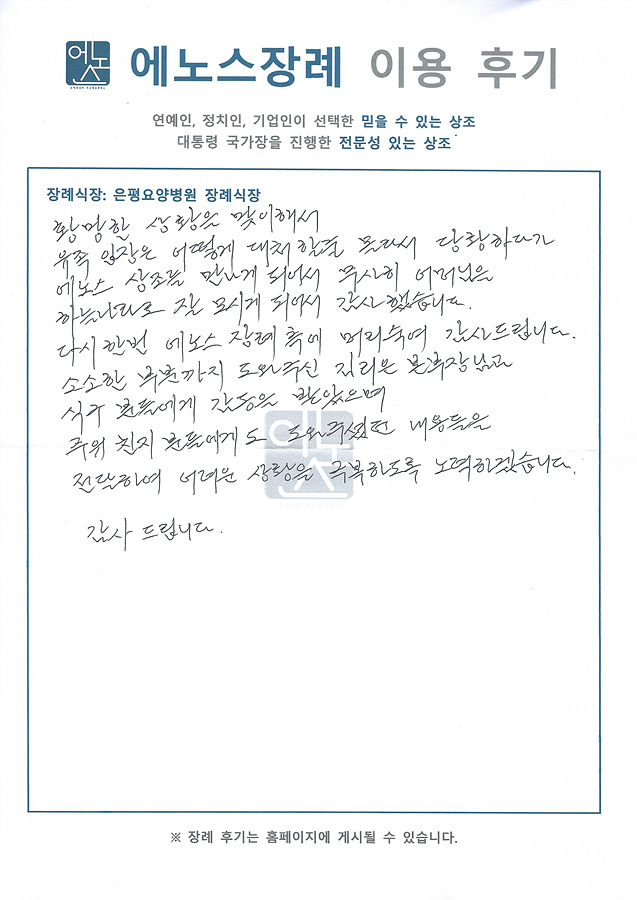 에노스
ENOSE FUNERAL
에노스장례 이용 후기
연예인, 정치인, 기업인이 선택한 믿을 수 있는 상조
대통령 국가장을 진행한 전문성 있는 상조
장례식장: 은평요양병원 장례식장
황망한 상황을 맞이해서
유족 입장은 어떻게 대처할줄 몰라서 당황하다가
에노스 상조를 만나게 되어서 무사히 어머님을
하늘나라로 잘 모시게 되어서 감사했습니다.
다시한번 에노스 장례 측에 머리숙여 감사드립니다.
소소한 부분까지 도와주신 본부장님과
식구 분들에게 감동을 받았으며
주위 친지 분들에게도 도와주셨던 내용들을
전달하여 어려운 상황을 극복하도록 노력하겠습니다.
감사 드립니다.
에노스
※ 장례 후기는 홈페이지에 게시될 수 있습니다.